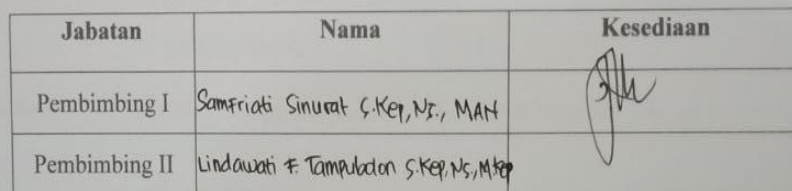 Jabatan Nama Kesediaan
Pembimbing I Samfriati Sinurat S.Kep, Ns., MAN
Pembimbing II Lindawati F. Tampubolon S.Kep, Ns, M.Kep